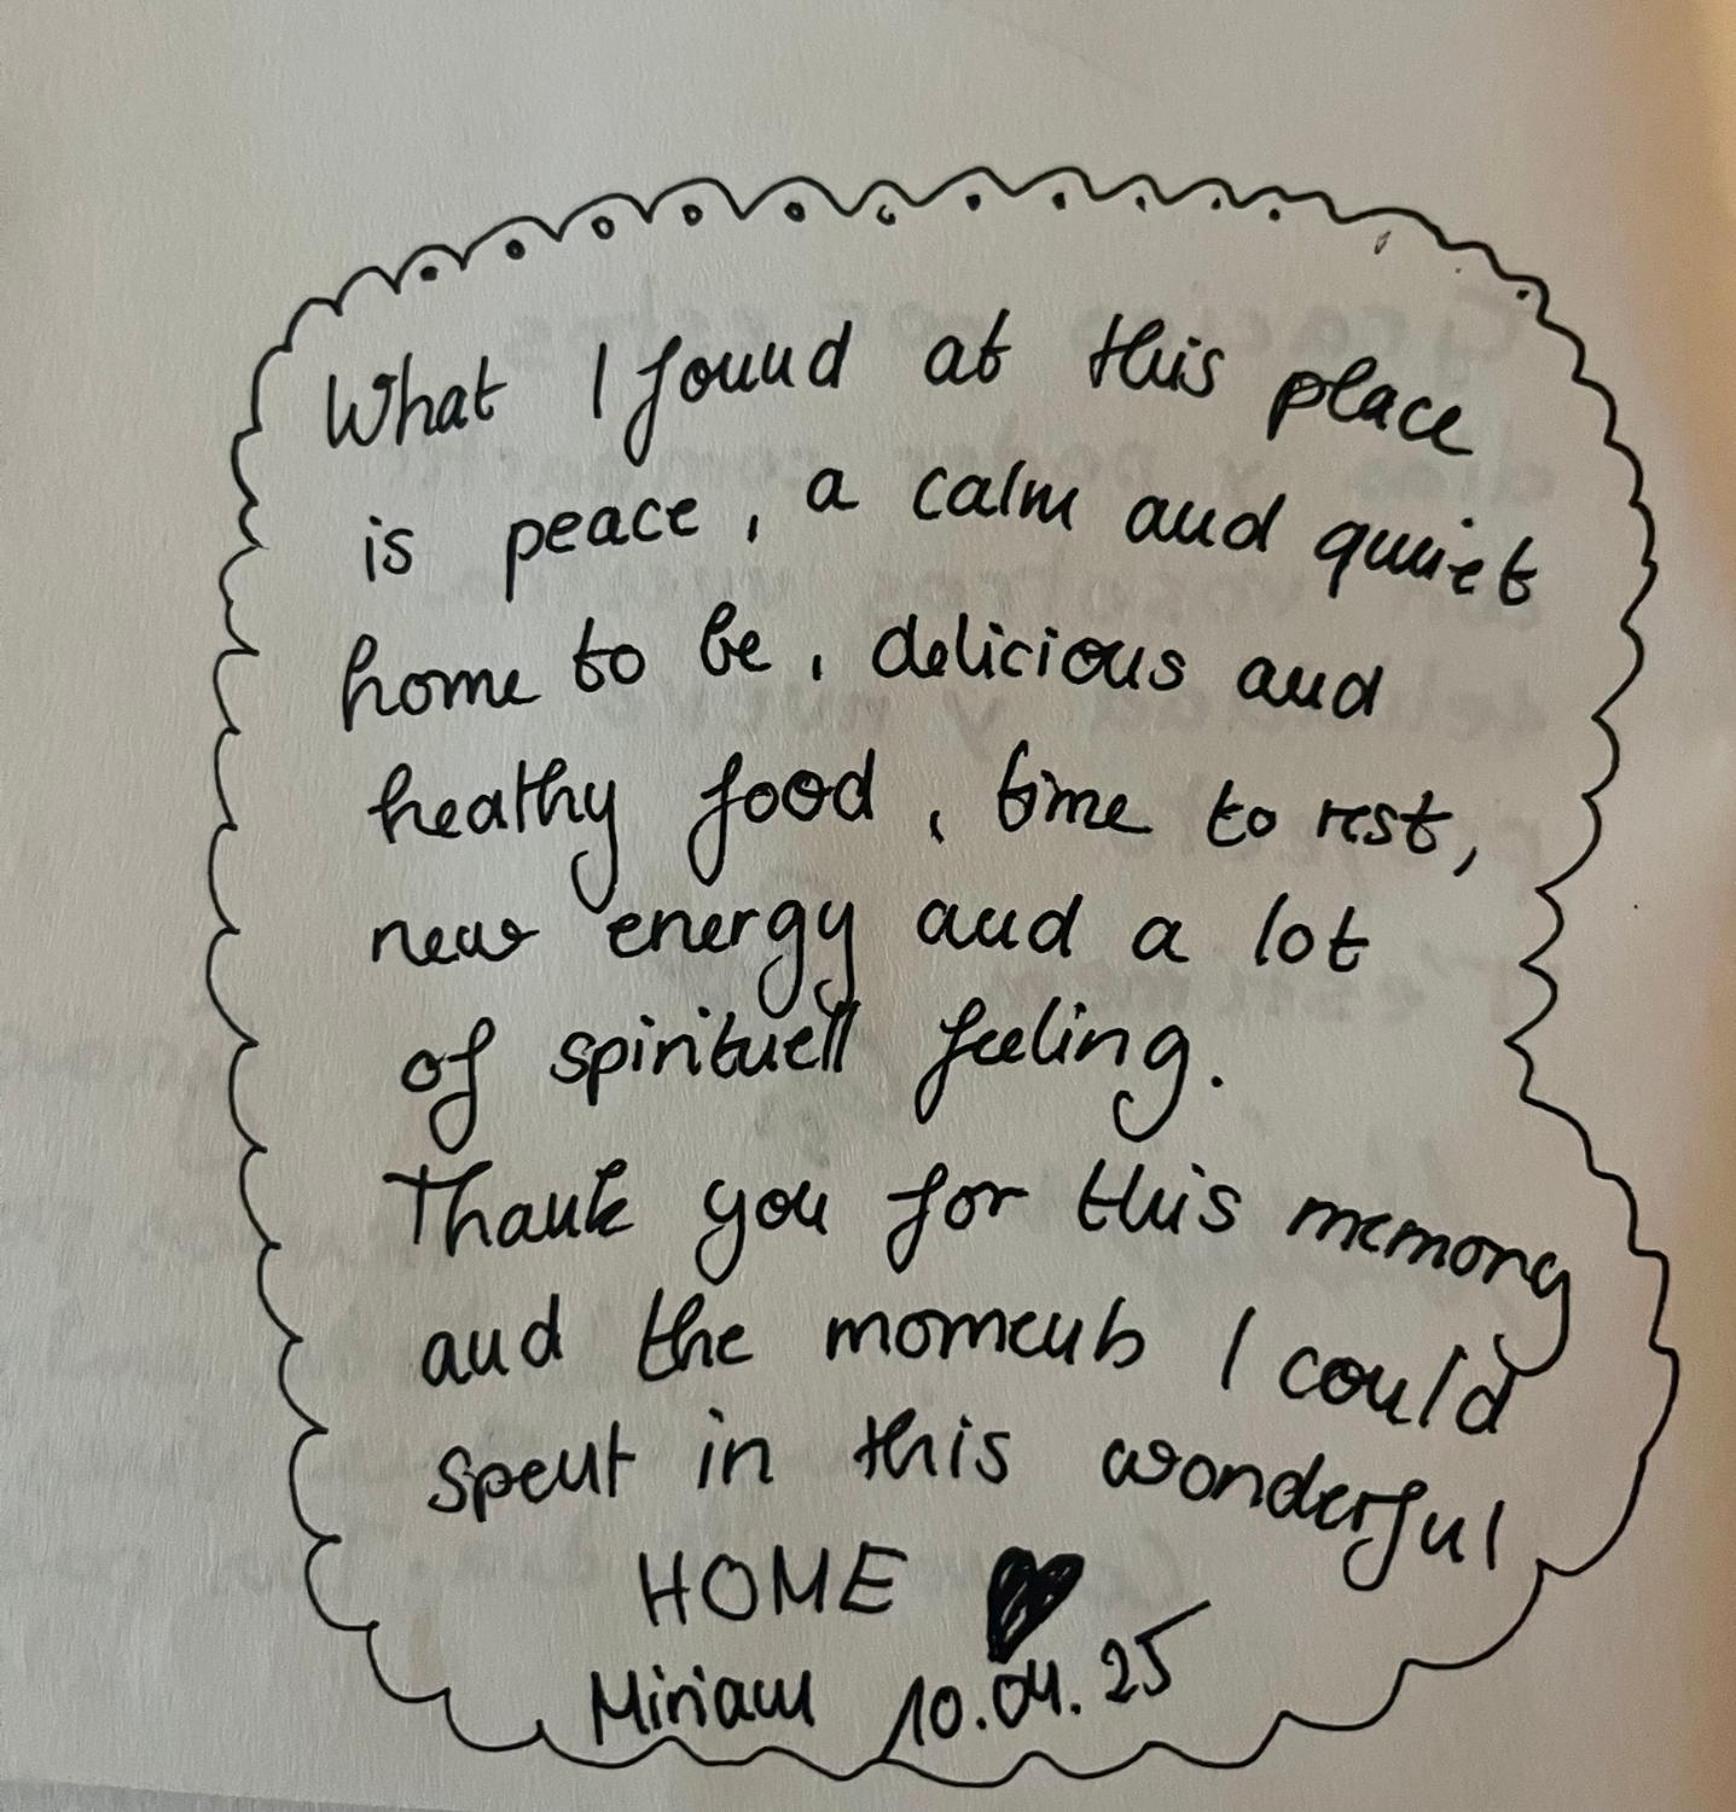 What I found at this place
is peace, a calm and quuiet
home to be, delicious and
heathy food, time to rest,
new energy and a lot
of spirituell feeling.
Thank you for this memory
and the moments I could
spent in this wonderful
HOME ♥
Miriam 10.04.25